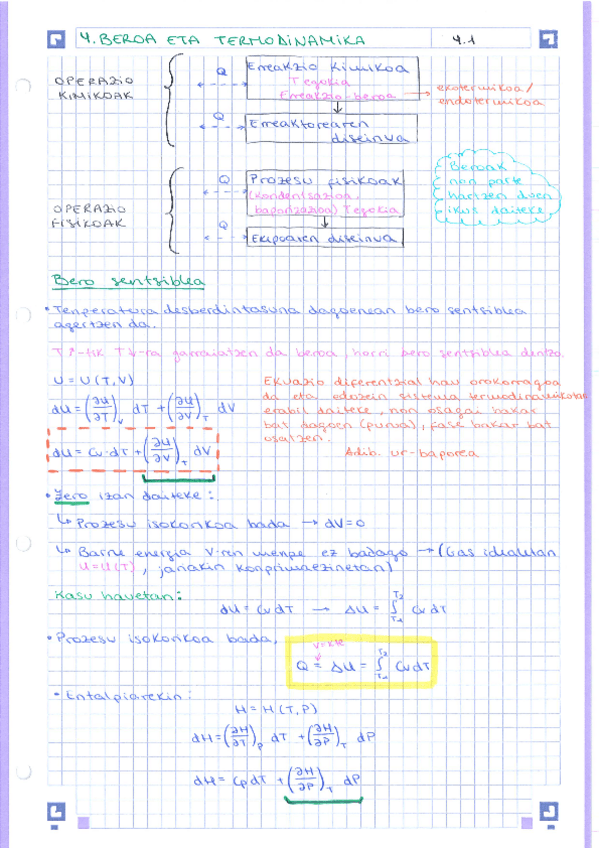 4. BEROA ETA TERMODINAMIKA 4.1
OPERAZIO KIMIKOAK
Q
Erreakzio kimikoa
Tegokia
Erreakzio-beroa → exotermikoa/
endotermikoa
Q
Erreaktorearen
diseinua
OPERAZIO FISIKOAK
Q
Prozesu fisikoak
(kondentsazioa,
baporizazioa) Tegokia
Q
Ekipoaren diseinua
Beroak
non parte
hartzen duen
ikus daiteke
Bero sentsiblea
• Tenperatura desberdintasuna dagoenean bero sentsiblea
agertzen da.
T↑-tik T↓-ra garraiatzen da beroa, horri bero sentsiblea deritzo.
U = U(T,V)
dU = (∂U/∂T)_V dT + (∂U/∂V)_T dV
dU = Cv·dT + (∂U/∂V)_T dV
Ekuazio diferentzial hau orokorragoa
da eta edozein sistema termodinamikotan
erabil daiteke, non osagai bakar
bat dagoen (purua), fase bakar bat
osatzen.
Adib. ur-baporea
• Zero izan daiteke:
↳ Prozesu isokorikoa bada → dV=0
↳ Barne energia V-ren menpe ez badago → (Gas idealetan
U=U(T), jariakin konprimaezinetan)
Kasu hauetan:
dU = Cv dT → ΔU = ∫_{T1}^{T2} Cv dT
• Prozesu isokorikoa bada,
V=kte
Q = ΔU = ∫_{T1}^{T2} Cv dT
• Entalpiarekin:
H = H(T,P)
dH = (∂H/∂T)_P dT + (∂H/∂P)_T dP
dH = Cp dT + (∂H/∂P)_T dP